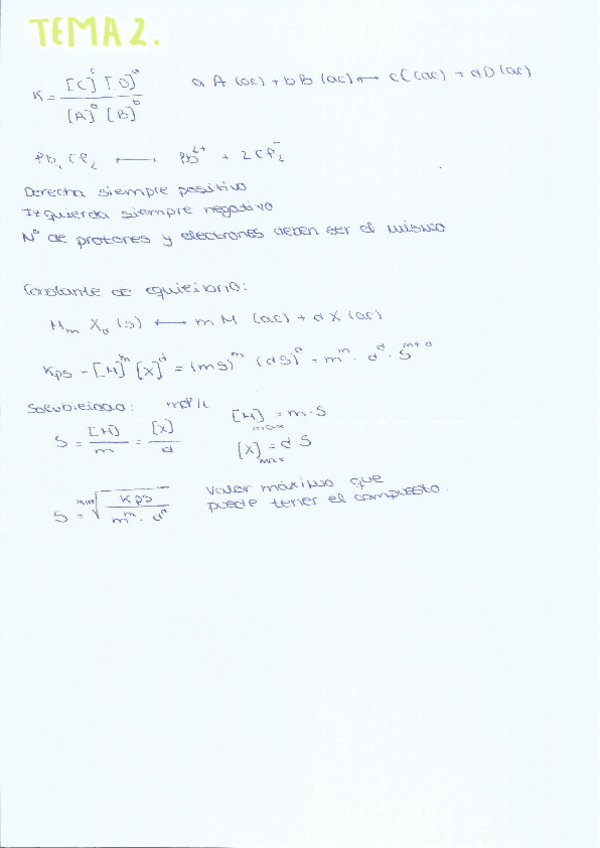 TEMA 2.
K = [C]^c [D]^d / [A]^a [B]^b   a A (ac) + b B (ac) ⟷ c C (ac) + d D (ac)
Pb, Cl₂ ⟷ Pb²⁺ + 2Cl₂⁻
Derecha siempre positivo
Izquierda siempre negativo
Nº de protones y electrones deben ser el mismo
Constante de equilibrio:
Mm Xd (s) ⟷ m M (ac) + d X (ac)
Kps = [M]^m [X]^d = (mS)^m (dS)^d = m^m · d^d · S^(m+d)
Solubilidad: mol/L   [M]max = m · S
S = [M]/m = [X]/d   [X]max = d S
S = ᵐ⁺ᵈ√(Kps / m^m · d^d)   Valor máximo que
puede tener el compuesto.